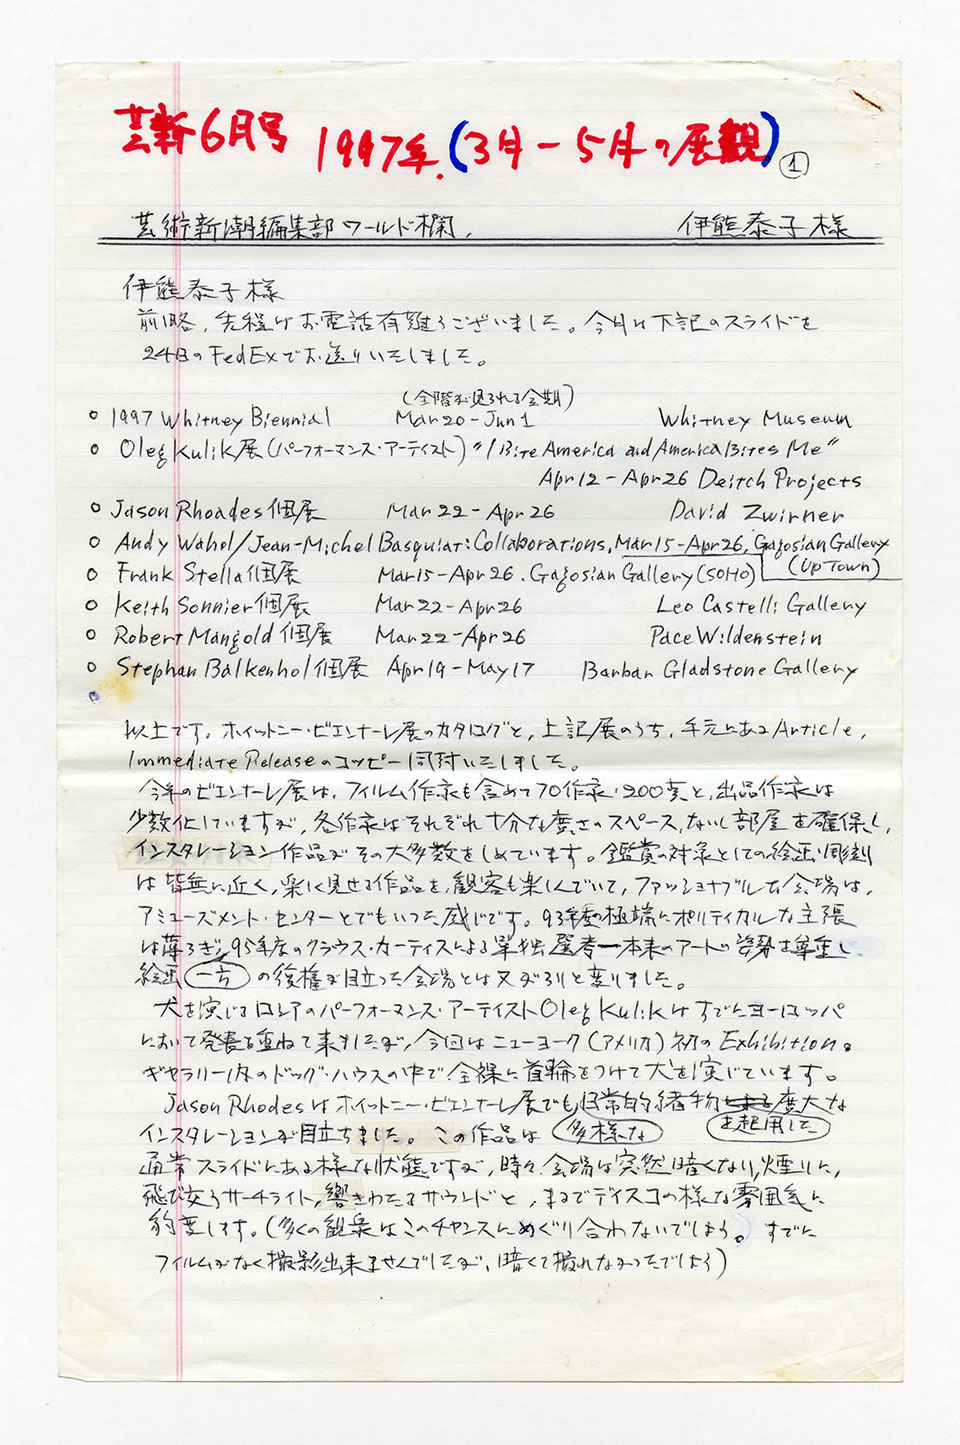 芸新6月号 1997年.(3月-5月の展観) ①
芸術新潮編集部ワールド欄, 伊熊泰子様
伊熊泰子様
前略、先程はお電話有難うございました。今月は下記のスライドを
24日のFedExでお送りいたしました。
(全階が見られる会期)
○ 1997 Whitney Biennial Mar20-Jun1 Whitney Museum
○ Oleg Kulik展(パーフォーマンス・アーティスト) "I Bite America and America Bites Me"
Apr12-Apr26 Deitch Projects
○ Jason Rhoades個展 Mar22-Apr26 David Zwirner
○ Andy Wahol/Jean-Michel Basquiat:Collaborations, Mar15-Apr26, Gagosian Gallery
(UpTown)
○ Frank Stella個展 Mar15-Apr26. Gagosian Gallery(SOHO)
○ Keith Sonnier個展 Mar22-Apr26 Leo Castelli Gallery
○ Robert Mangold個展 Mar22-Apr26 PaceWildenstein
○ Stephan Balkenhol個展 Apr19-May17 Barbar Gladstone Gallery
以上です。ホイットニー・ビエンナーレ展のカタログと、上記展のうち、手元にあるArticle,
Immediate Releaseのコッピー同封いたしました。
今年のビエンナーレ展は、フィルム作家も含めて70作家・200点と、出品作家は
少数化していますが、各作家はそれぞれ十分な広さのスペース、ないし部屋を確保し、
インスタレーション作品がその大多数をしめています。鑑賞の対象としての絵画・彫刻
は皆無に近く、楽しく見せる作品を、観客も楽しんでいて、ファッショナブルな会場は、
アミューズメント・センターとでもいった感じです。93年度の極端にポリティカルな主張
は薄らぎ、95年度のクラウス・カーティスによる単独選考一本来のアートの姿勢を尊重し
絵画 一方 の復権が目立った会場とは又がらりと変りました。
犬を演じるロシアのパーフォーマンス・アーティストOleg Kulikはすでにヨーロッパ
において発表を重ねて来ましたが、今回はニューヨーク(アメリカ)初のExhibition。
ギャラリー内のドッグ・ハウスの中で全裸に首輪をつけて犬を演じています。
Jason Rhodesはホイットニー・ビエンナーレ展でも日常的諸物 を起用した 広大な
インスタレーションが目立ちました。この作品は 多様な
通常スライドにある様な状態ですが、時々、会場は突然暗くなり、煙りに、
飛び交うサーチライト、響きわたるサウンドと、まるでディスコの様な雰囲気に
豹変します。(多くの観衆はこのチャンスにめぐり合わないでしょう。すでに
フィルムがなく撮影出来ませんでしたが、暗くて撮れなかったでしょう)